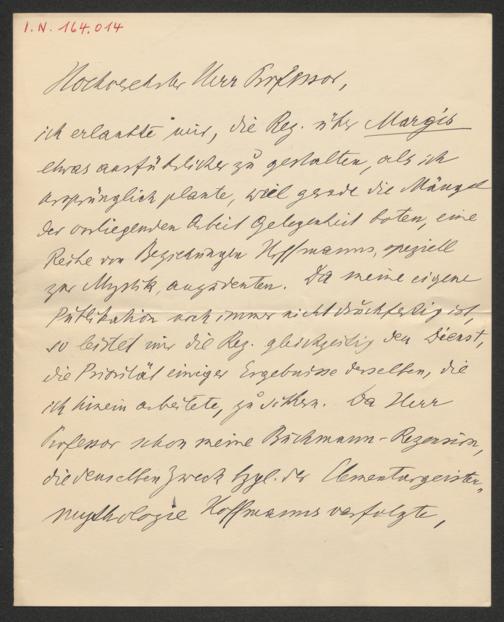 I. N. 164.014
Hochverehrter Herr Professor,
ich erlaubte mir, die Rez. über Margis
etwas ausführlicher zu gestalten, als ich
ursprünglich plante, weil gerade die Mängel
der vorliegenden Arbeit Gelegenheit boten, eine
Reihe von Beziehungen Hoffmanns, speziell
zur Mystik, anzudeuten. Da meine eigene
Publikation noch immer nicht druckfertig ist,
so leistet mir die Rez. gleichzeitig den Dienst,
die Priorität einiger Ergebnisse derselben, die
ich hinein arbeitete, zu sichern. Da Herr
Professor schon meine Buchmann-Rezension,
die denselben Zweck bzgl. der Elementargeister-
mythologie Hoffmanns verfolgte,